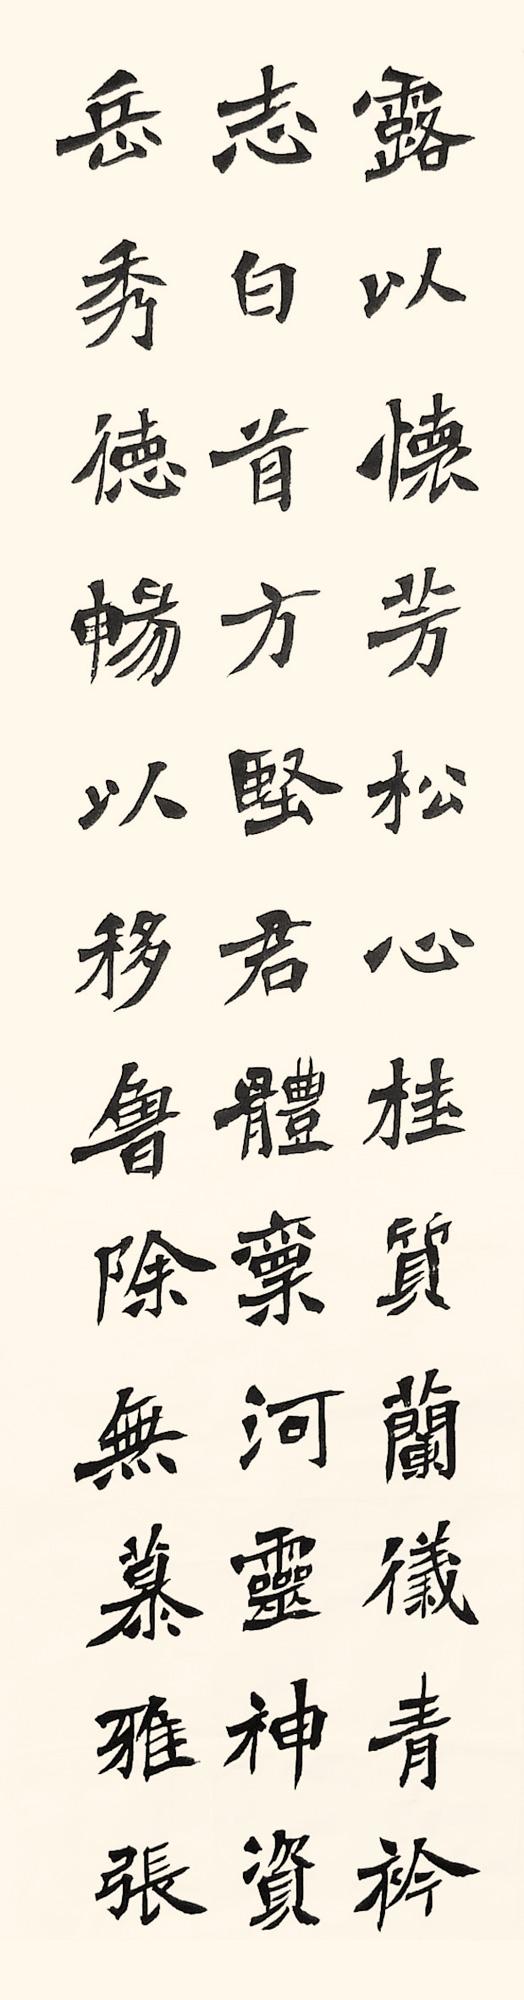 露以懷芳松心桂質蘭儀青衿
志白首方堅君體稟河靈神資
岳秀德暢以移魯除無慕雅張